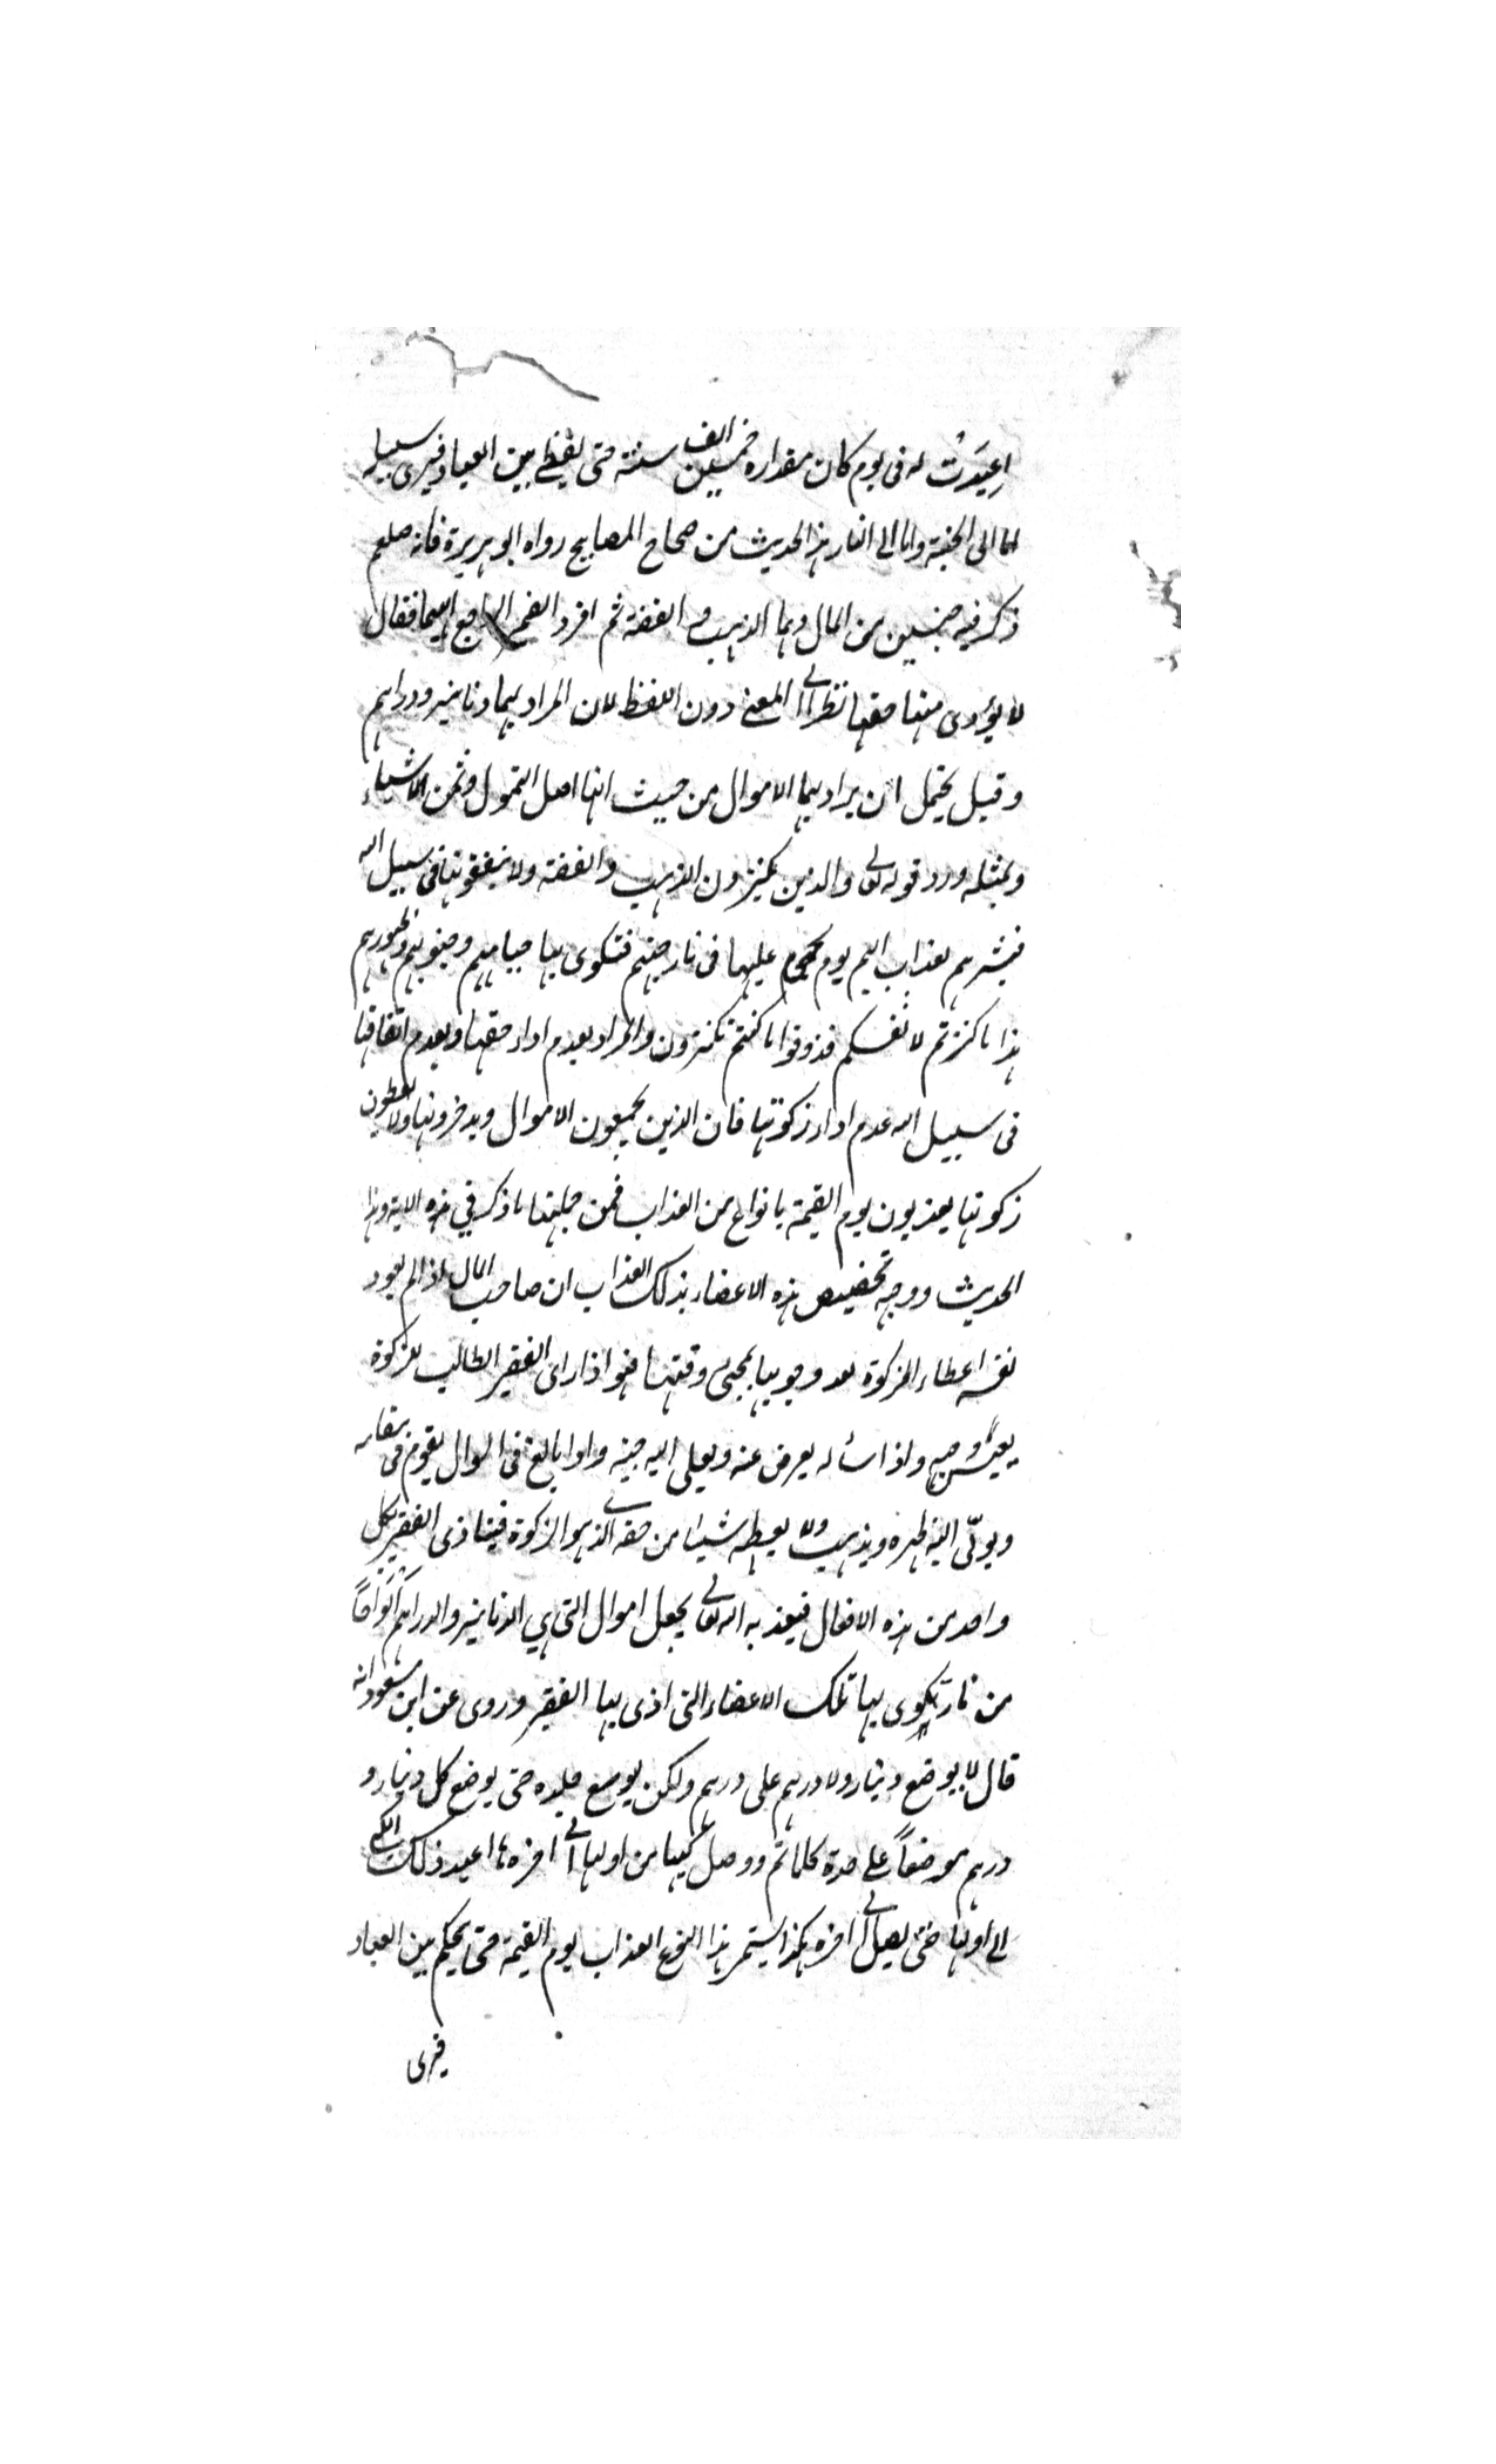 اعِيدَتْ له فى يوم كان مقداره خمسين الف سنة حتى يقضى بين العباد فيرى سبيله
اما الى الجنة واما الى النار هذا الحديث من صحاح المصابيح رواه ابو هريرة فانه صلعم
ذكر فيه جنسين من المال وهما الذهب و الفضة ثم افرد الضمير الراجع اليهما فقال
لا يؤدى منها حقها نظرا الى المعنى دون اللفظ لان المراد بهما دنانير ودراهم
وقيل يحتمل ان يراد بهما الاموال من حيث انها اصل التمول وثمن الاشياء
وبمثله ورد قوله تعالى والذين يكنزون الذهب والفضة ولا ينفقونها فى سبيل الله
فبشرهم بعذاب اليم يوم يحمى عليها فى نار جهنم فتكوى بها جباههم وجنوبهم وظهورهم
هذا ما كنزتم لانفسكم فذوقوا ما كنتم تكنزون والمراد بعدم اداء حقها وبعدم انفاقها
فى سبيل الله عدم اداء زكوتها فان الذين يجمعون الاموال ويدخرونها ولا يعطون
زكوتها يعذبون يوم القيمة بانواع من العذاب فمن جملتها ما ذكر في هذه الاية وهذا
الحديث ووجه تخصيص هذه الاعضاء بذلك العذاب ان صاحب المال اذا لم يعود
نفسه اعطاء الزكوة بعد وجوبها بمجئ وقتها فهو اذا راى الفقير الطالب للزكوة
يعبس وجهه واذا سأله يعرض عنه ويولى اليه جنبه واذا بالغ فى السوال يقوم فى مقامه
ويولّى اليه ظهره ويذهب ولا يعطيه شيئا من حقه الذى هو الزكوة فيتاذى الفقير بكل
واحد من هذه الافعال فيعذبه الله تعالى بجعل اموال التى هي الدنانير والدراهم الواحًا
من نار تكوى بها تلك الاعضاء التى اذى بها الفقير وروى عن ابن مسعود انه
قال لا يوضع دينار ولا درهم على درهم ولكن يوسع جلده حتى يوضع كل دينار و
درهم موضعاً على حدة كلما تم ووصل كيها من اولها الى اخره ها اعيد ذلك الكي
الى اولها حتى يصل الى اخره هكذا يستمر هذا النوع العذاب يوم القيمة حتى يحكم بين العباد
فيرى